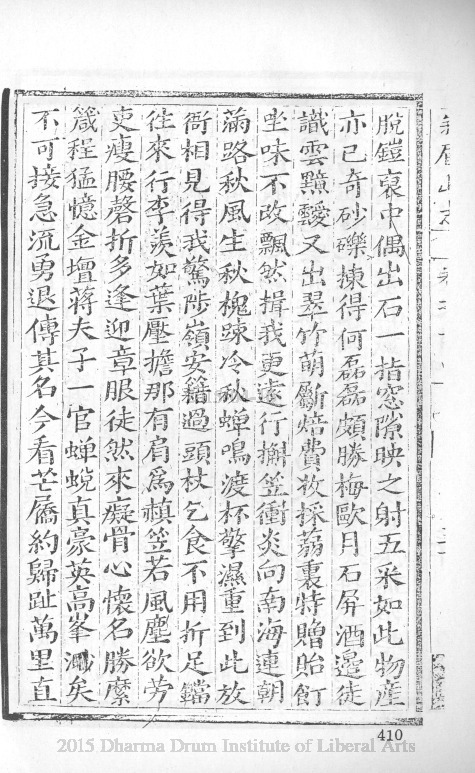 脫鎧裒中偶出石一指窓隙映之射五采如此物産
亦已奇砂礫揀得何磊磊頗勝梅歐月石屏酒邊徒
識雲黯靉又出翠竹萌斸焙費孜採蒻裹特贈貽飣
坐味不改飄然揖我更遠行擀笠衝炎向南海連朝
滿路秋風生秋槐踈冷秋蟬鳴渡杯擎濕重到此放
衙相見得我驚陟嶺安籍過頭杖乞食不用折足鐺
往來行李羡如葉壓擔那有肩爲赬笠若風塵欲劳
吏瘦腰磬折多逢迎章服徒然來癡骨心懷名勝縻
箴程猛憶金壇蔣夫子一官蟬蛻真豪英高峯濺矣
不可接急流勇退傳其名今看芒屩約歸趾萬里直
410
2015 Dharma Drum Institute of Liberal Arts